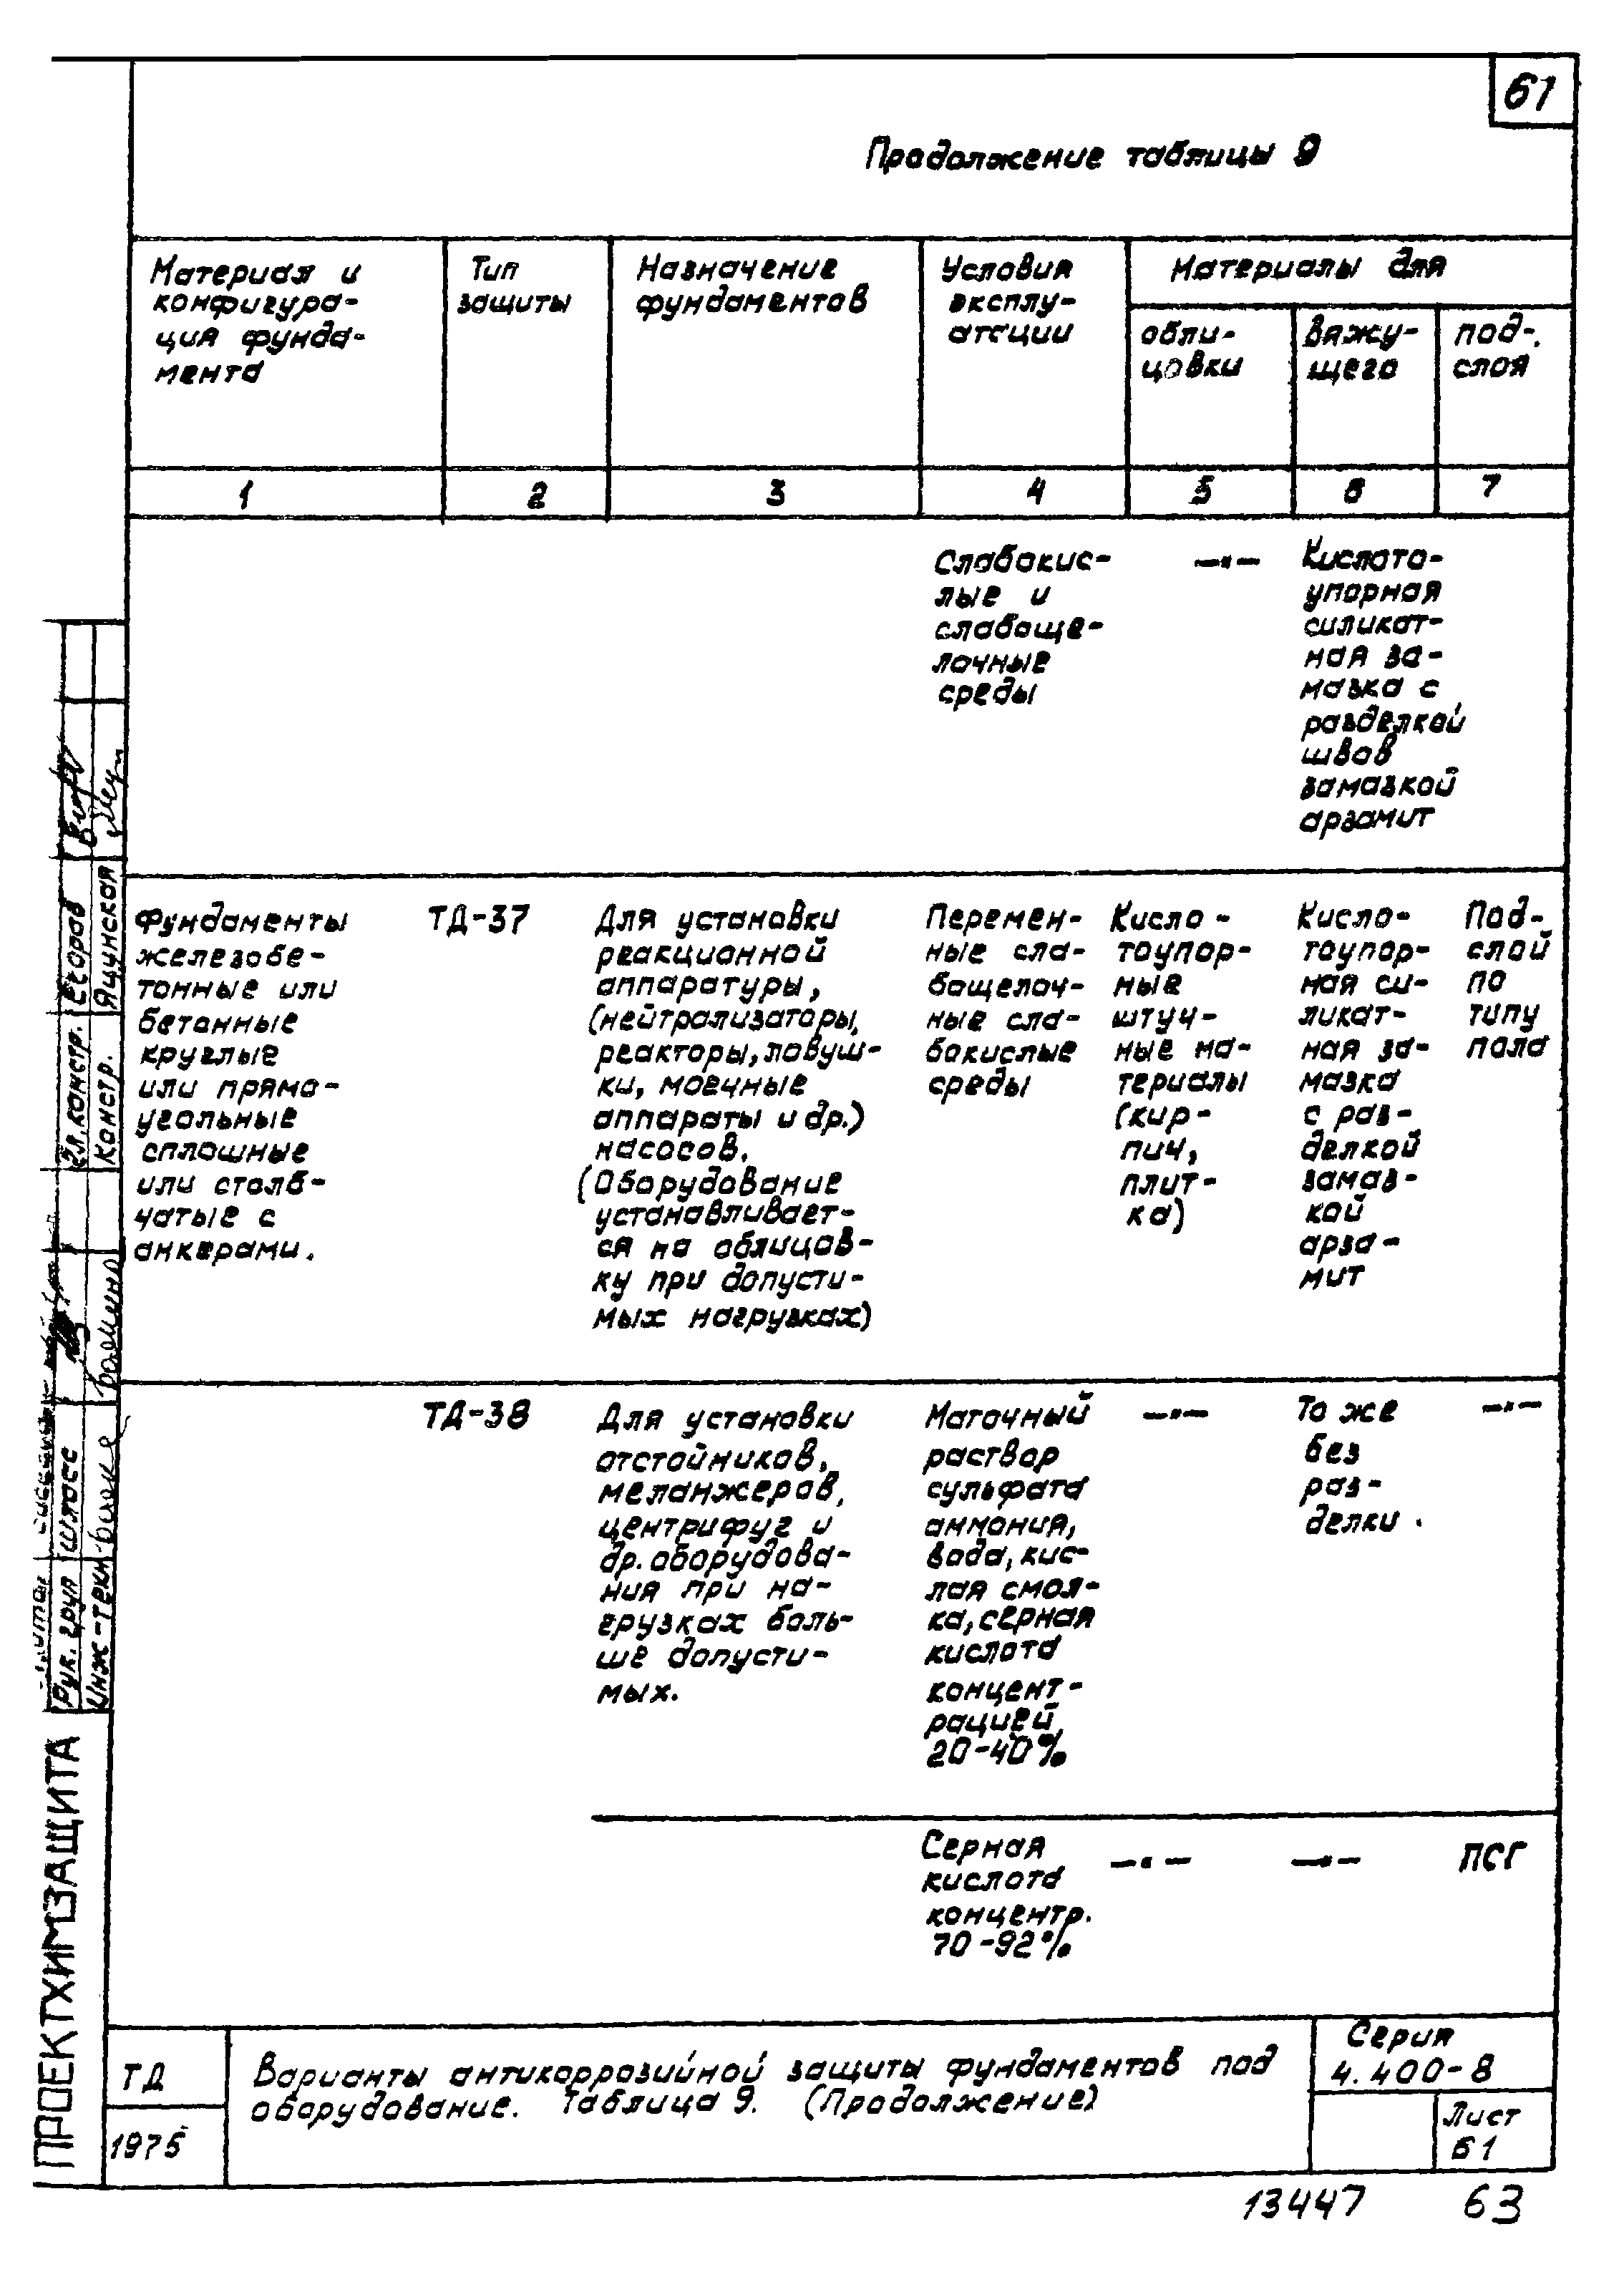 61
Продолжение таблицы 9
Материал и
конфигура-
ция фунда-
мента
Тип
защиты
Назначение
фундаментов
Условия
эксплу-
атации
Материалы для
обли-
цовки
вяжу-
щего
под-
слоя
1 2 3 4 5 6 7
Слабокис-
лые и
слабоще-
лочные
среды
—"—
Кислото-
упорная
силикат-
ная за-
мазка с
разделкой
швов
замазкой
арзамит
Фундаменты
железобе-
тонные или
бетонные
круглые
или прямо-
угольные
сплошные
или столб-
чатые с
анкерами.
ТД-37
Для установки
реакционной
аппаратуры,
(нейтрализаторы,
реакторы, ловуш-
ки, моечные
аппараты и др.)
насосов.
(Оборудование
устанавливает-
ся на облицов-
ку при допусти-
мых нагрузках)
Перемен-
ные сла-
бощелоч-
ные сла-
бокислые
среды
Кисло-
тоупор-
ные
штуч-
ные ма-
териалы
(кир-
пич,
плит-
ка)
Кисло-
тоупор-
ная си-
ликат-
ная за-
мазка
с раз-
делкой
замаз-
кой
арза-
мит
Под-
слой
по
типу
пола
ТД-38
Для установки
отстойников,
меланжеров,
центрифуг и
др. оборудова-
ния при на-
грузках боль-
ше допусти-
мых.
Маточный
раствор
сульфата
аммония,
вода, кис-
лая смол-
ка, серная
кислота
концент-
рацией
20-40%
—"—
То же
без
раз-
делки.
—"—
Серная
кислота
концентр.
70-92%
—"—
—"—
ПСГ
ПРОЕКТХИМЗАЩИТА
Рук. груп Шлосс
Инж-техн
Гл. констр. Егоров
Констр. Яцунская
ТД
1975
Варианты антикоррозийной защиты фундаментов под
оборудование. Таблица 9. (Продолжение)
Серия
4.400-8
Лист
61
13447 63